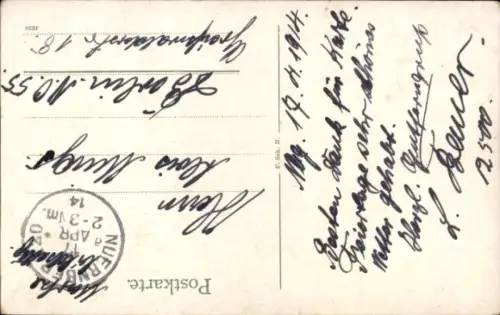 Postkarte.
NUERNBERG
17 APR
2-3 Nm.
14
Herrn
Alois
Berlin N.O. 55.
Greifswalderstr. 18.
F. Sch. N.
Nbg. 17.4.1914.
Besten Dank für Karte.
Feiertage sehr schönes
Wetter gehabt.
Herzl. Gutferngruß
L. Bauer.
12500.